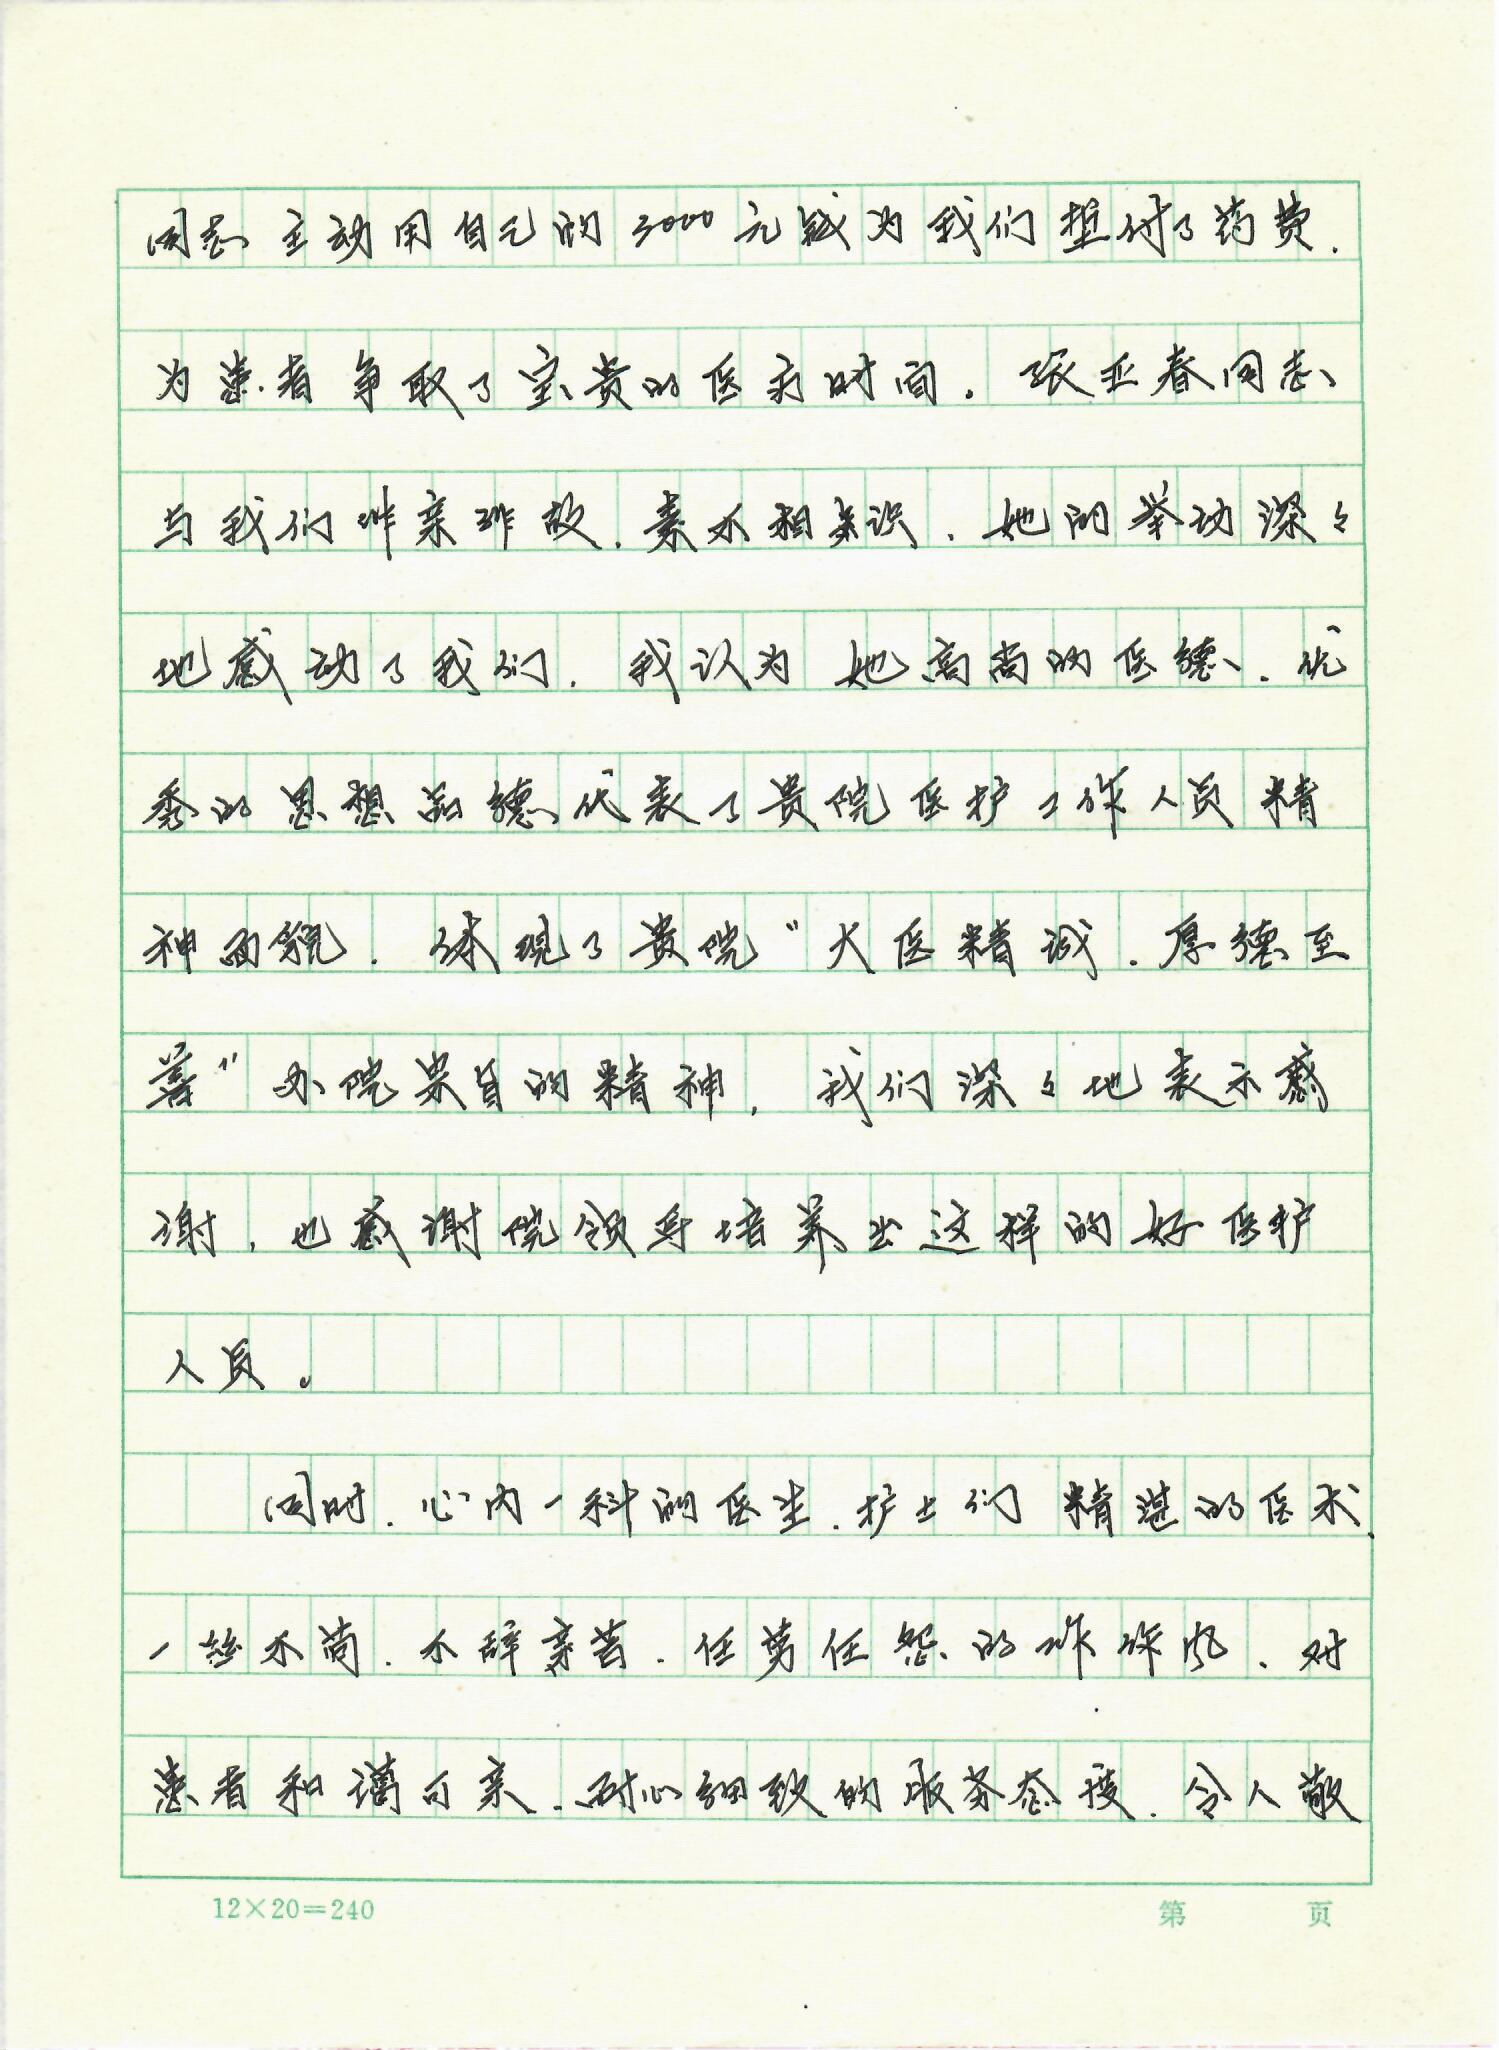 同志主动用自己的3000元钱为我们垫付了药费.
为患者争取了宝贵的医疗时间。张亚春同志
与我们非亲非故.素不相识.她的举动深々
地感动了我们.我认为她高尚的医德.优
秀的思想品德代表了贵院医护工作人员精
神面貌.体现了贵院"大医精诚.厚德至
善"办院宗旨的精神,我们深々地表示感
谢,也感谢院领导培养出这样的好医护
人员。
同时.心内一科的医生.护士们精湛的医术.
一丝不苟.不辞辛苦.任劳任怨的工作作风.对
患者和谒可亲.耐心细致的服务态度.令人敬
12×20=240
第 页